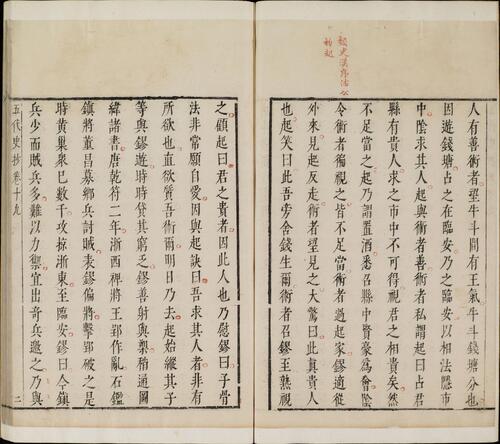 人有善術者望牛斗間有王氣牛斗錢塘分也
因遊錢塘占之在臨安乃之臨安以相法隱市
中陰求其人起與術者善術者私謂起曰占君
縣有貴人求之市中不可得視君之相貴矣然
不足當之起乃謂置酒悉召縣中賢豪為會陰
令術者徧視之皆不足當術者過起家鏐適從
外來見起反走術者望見之大驚曰此真貴人
也起笑曰此吾旁舍錢生爾術者召鏐至熟視
之顧起曰君之貴者因此人也乃慰鏐曰子骨
法非常願自愛因與起訣曰吾求其人者非有
所欲也直欲質吾術爾明日乃去起始縱其子
等與鏐遊時時貸其窮乏鏐善射與槊稍通圖
緯諸書唐乾符二年浙西裨將王郢作亂石鑑
鎮將董昌募鄉兵討賊表鏐偏將擊郢破之是
時黃巢眾巳數千攻掠浙東至臨安鏐曰今鎮
兵少而賊兵多難以力禦宜出奇兵邀之乃與
五代史抄 卷十九 二